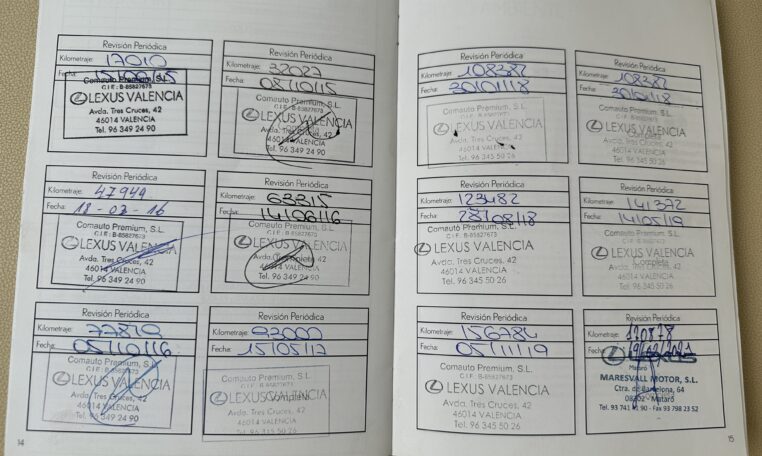 Revisión Periódica
Kilometraje: 17010
Fecha:
Comauto Premium, S.L.
C.I.F.: B-85827673
LEXUS VALENCIA
Avda. Tres Cruces, 42
46014 VALENCIA
Tel. 96 349 24 90
Revisión Periódica
Kilometraje: 32027
Fecha: 08/10/15
Comauto Premium, S.L.
C.I.F.: B-85827673
LEXUS VALENCIA
Avda. Tres Cruces, 42
46014 VALENCIA
Tel. 96 349 24 90
Revisión Periódica
Kilometraje: 47949
Fecha: 18-03-16
Comauto Premium, S.L.
C.I.F.: B-85827673
LEXUS VALENCIA
Avda. Tres Cruces, 42
46014 VALENCIA
Tel. 96 349 24 90
Revisión Periódica
Kilometraje: 63315
Fecha: 14/06/16
Comauto Premium, S.L.
C.I.F.: B-85827673
LEXUS VALENCIA
46014 VALENCIA
Tel. 96 349 24 90
Revisión Periódica
Kilometraje: 77870
Fecha: 05/10/16
Comauto Premium, S.L.
C.I.F.: B-85827673
LEXUS VALENCIA
Avda. Tres Cruces, 42
46014 VALENCIA
Tel. 96 349 24 90
Revisión Periódica
Kilometraje: 93000
Fecha: 15/05/17
Comauto Premium, S.L.
LEXUS VALENCIA
Avda. Tres Cruces, 42
46014 VALENCIA
Tel. 96 345 50 26
14
Revisión Periódica
Kilometraje: 108382
Fecha: 30/01/18
Comauto Premium, S.L.
C.I.F.: B-85827673
LEXUS VALENCIA
Avda. Tres Cruces, 42
46014 VALENCIA
Tel. 96 345 50 26
Revisión Periódica
Kilometraje: 108382
Fecha: 30/01/18
Comauto Premium, S.L.
C.I.F.: B-85827673
LEXUS VALENCIA
Avda. Tres Cruces, 42
46014 VALENCIA
Tel. 96 345 50 26
Revisión Periódica
Kilometraje: 123482
Fecha: 28/08/18
Comauto Premium, S.L.
C.I.F.: B-85827673
LEXUS VALENCIA
Avda. Tres Cruces, 42
46014 VALENCIA
Tel. 96 345 50 26
Revisión Periódica
Kilometraje: 141372
Fecha: 14/05/19
Comauto Premium, S.L.
C.I.F.: B-85827673
LEXUS VALENCIA
Avda. Tres Cruces, 42
46014 VALENCIA
Tel. 96 345 50 26
Revisión Periódica
Kilometraje: 156784
Fecha: 05/11/19
Comauto Premium, S.L.
C.I.F.: B-85827673
LEXUS VALENCIA
Avda. Tres Cruces, 42
46014 VALENCIA
Tel. 96 345 50 26
Revisión Periódica
Kilometraje: 170878
Fecha:
LEXUS
Mataró
MARESVALL MOTOR, S.L.
Ctra. de Barcelona, 64
08302 - Mataró
Tel. 93 741 90 - Fax 93 798 23 52
15